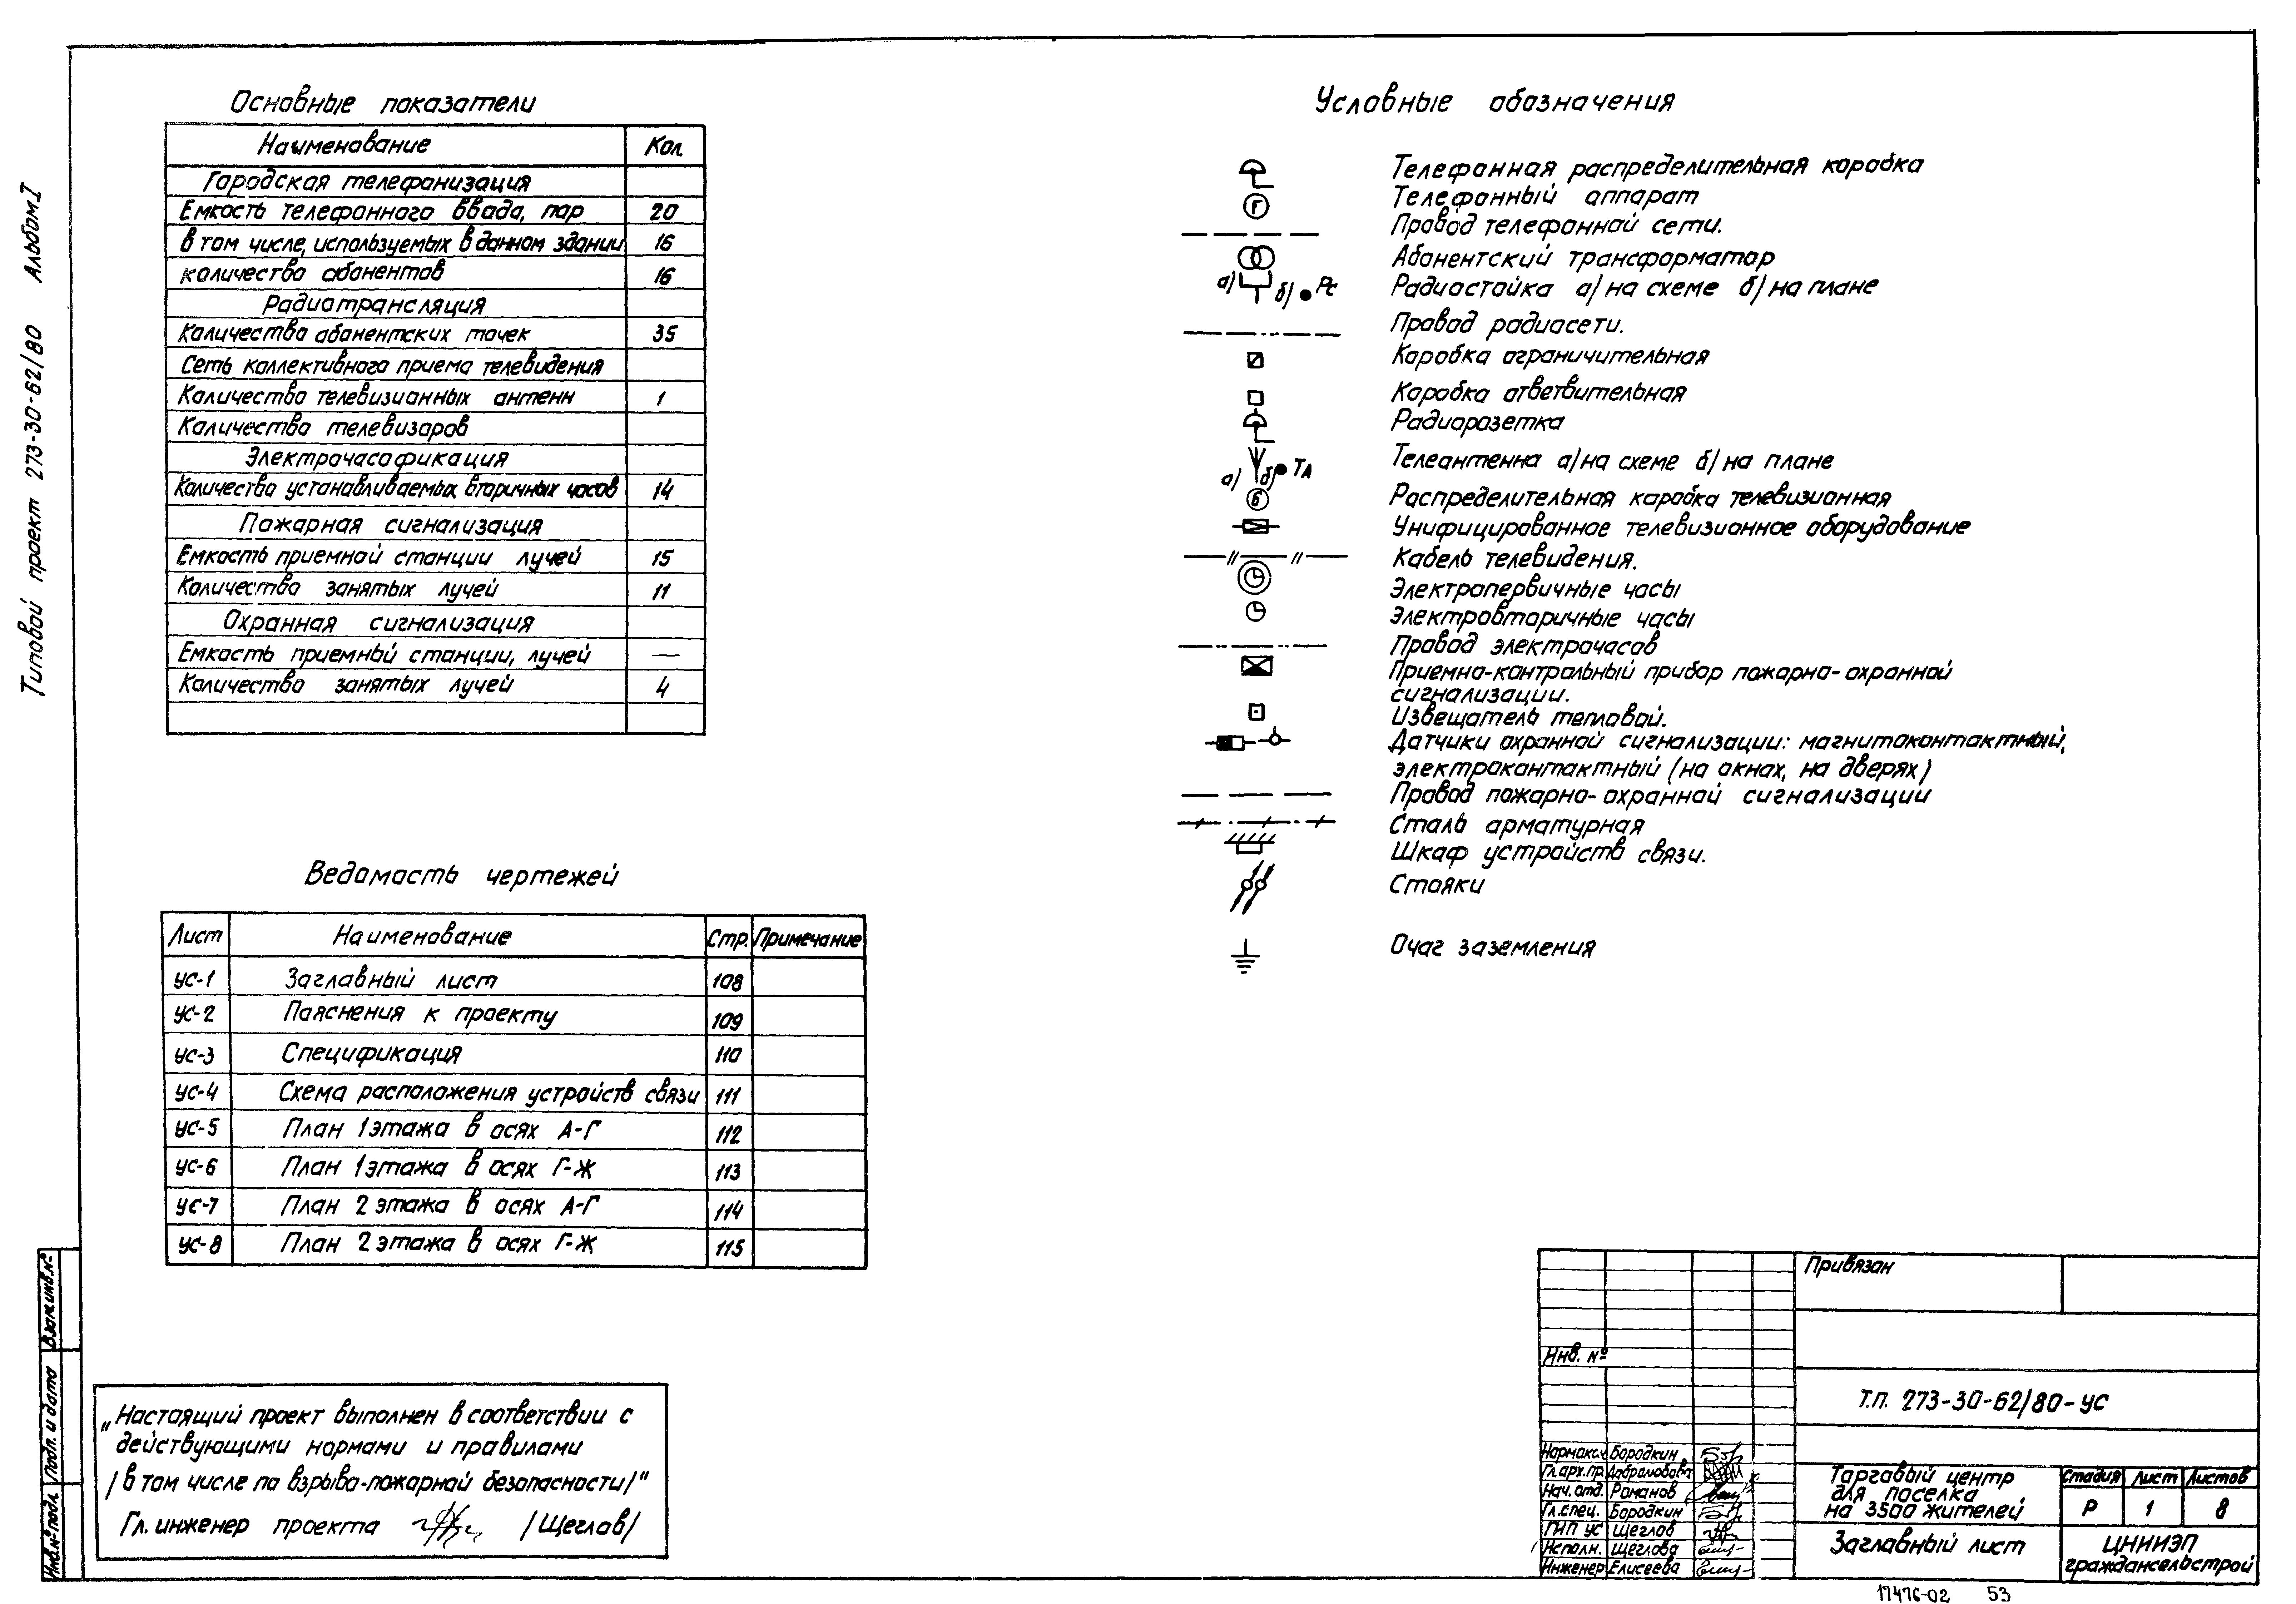 Типовой проект 273-30-62/80 Альбом I
Основные показатели
Наименование Кол.
Городская телефонизация
Емкость телефонного ввода, пар 20
в том числе, используемых в данном здании 16
количество абонентов 16
Радиотрансляция
Количество абонентских точек 35
Сеть коллективного приема телевидения
Количество телевизионных антенн 1
Количество телевизоров
Электрочасофикация
Количество устанавливаемых вторичных часов 14
Пожарная сигнализация
Емкость приемной станции лучей 15
Количество занятых лучей 11
Охранная сигнализация
Емкость приемной станции, лучей —
Количество занятых лучей 4
Ведомость чертежей
Лист Наименование Стр. Примечание
УС-1 Заглавный лист 108
УС-2 Пояснения к проекту 109
УС-3 Спецификация 110
УС-4 Схема расположения устройств связи 111
УС-5 План 1 этажа в осях А-Г 112
УС-6 План 1 этажа в осях Г-Ж 113
УС-7 План 2 этажа в осях А-Г 114
УС-8 План 2 этажа в осях Г-Ж 115
„Настоящий проект выполнен в соответствии с
действующими нормами и правилами
/в том числе по взрыво-пожарной безопасности/"
Гл. инженер проекта /Щеглов/
Условные обозначения
Телефонная распределительная коробка
Г Телефонный аппарат
Провод телефонной сети.
Абонентский трансформатор
а/ б/ Рс Радиостойка а/ на схеме б/ на плане
Провод радиосети.
Коробка ограничительная
Коробка ответвительная
Радиорозетка
а/ б/ ТА Телеантенна а/ на схеме б/ на плане
6 Распределительная коробка телевизионная
Унифицированное телевизионное оборудование
Кабель телевидения.
Электропервичные часы
Электровторичные часы
Провод электрочасов
Приемно-контрольный прибор пожарно-охранной
сигнализации.
Извещатель тепловой.
Датчики охранной сигнализации: магнитоконтактный,
электроконтактный (на окнах, на дверях)
Провод пожарно-охранной сигнализации
Сталь арматурная
Шкаф устройств связи.
Стояки
Очаг заземления
Взам.инв.№
Подп. и дата
Инв.№ подл.
Привязан
Инв. №
Т.П. 273-30-62/80-УС
Нормокон. Бородкин
Гл.арх.пр. Добролюбова
Нач. отд. Романов
Гл.спец. Бородкин
ГИП УС Щеглов
Исполн. Щеглова
Инженер Елисеева
Торговый центр
для поселка
на 3500 жителей
Стадия Лист Листов
Р 1 8
Заглавный лист
ЦНИИЭП
граждансельстрой
17476-02 53